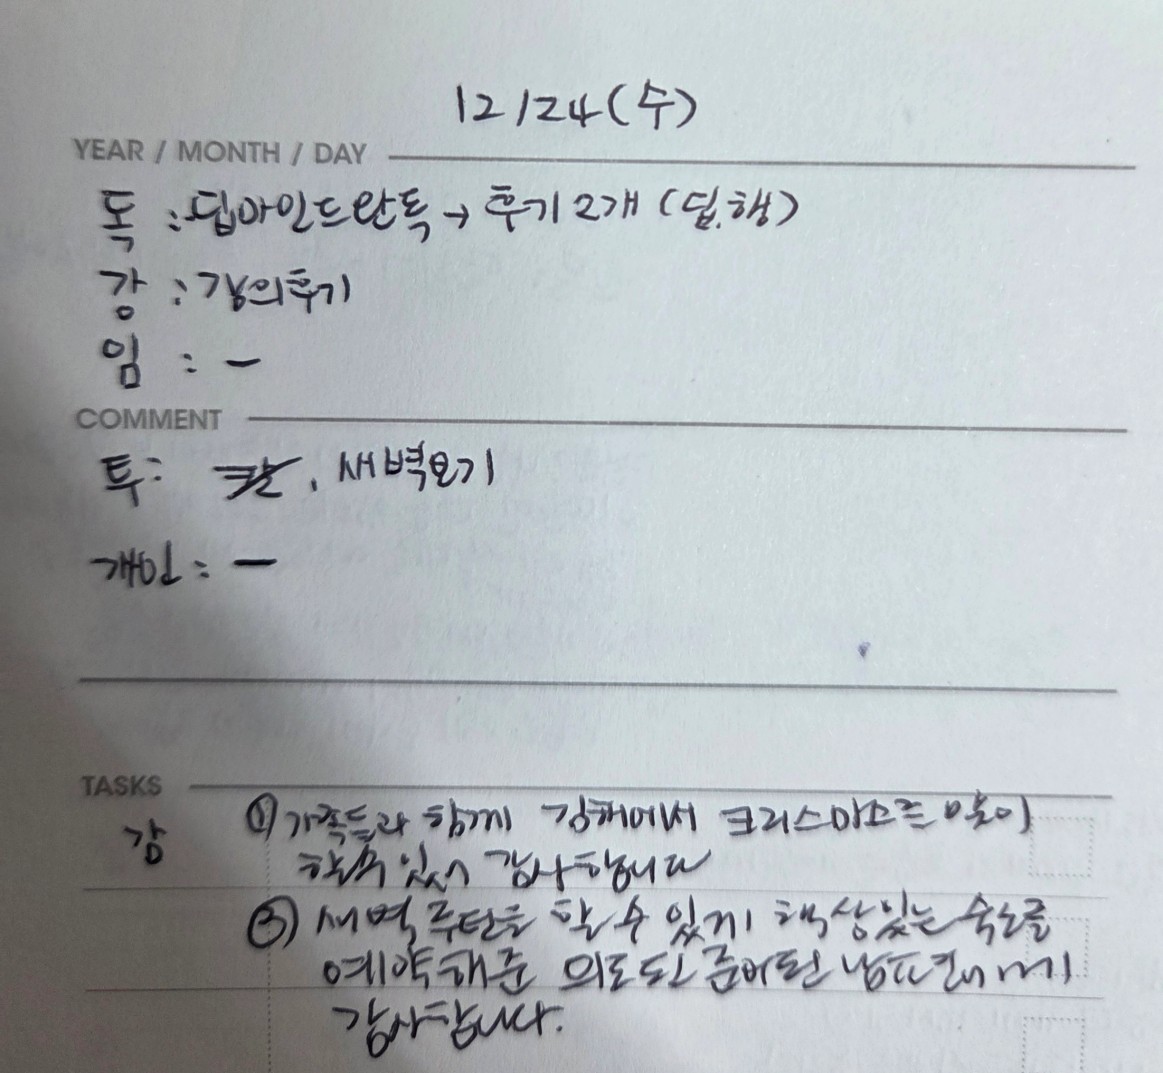 12/24(수)
YEAR / MONTH / DAY
독 : 딥마인드완독 → 후기 2개 (딥.행)
강 : 강의후기
임 : -
COMMENT
투: , 새벽보기
개인 : -
TASKS
감 ① 가족들과 함께 강해에서 크리스마스를 맞이
할수 있어 감사합니다
② 새벽 루틴을 할 수 있게 책상있는 숙소를
예약해준 남편에게
감사합니다.